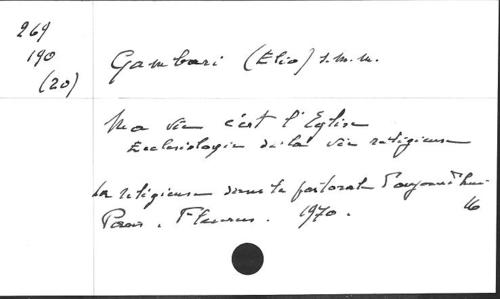 269
190
(20)
Gambari (Elio) s.m.m.
Ma vie c'est l'Eglise
Ecclésiologie de la vie religieuse
La religieuse dans la pastorale d'aujourd'hui
16
Paris. Fleurus. 1970.